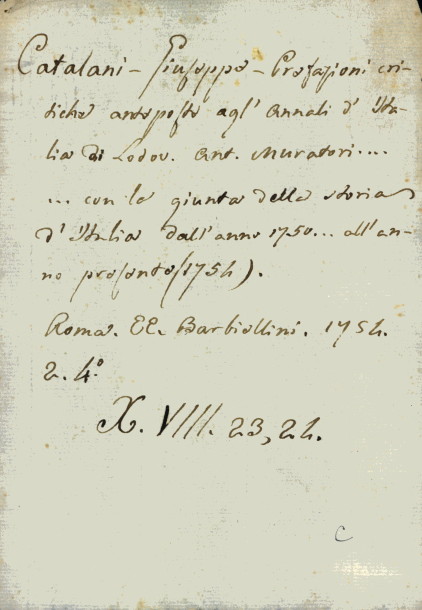 Catalani - Giuseppe - Prefazioni cri-
tiche anteposte agl' Annali d' Ita-
lia di Lodov. Ant. Muratori....
... con la giunta della storia
d' Italia dall' anno 1750... all' an-
no presente (1754).
Roma. EE. Barbiellini. 1754.
2. 4.°
X. VIII. 23, 24.
C